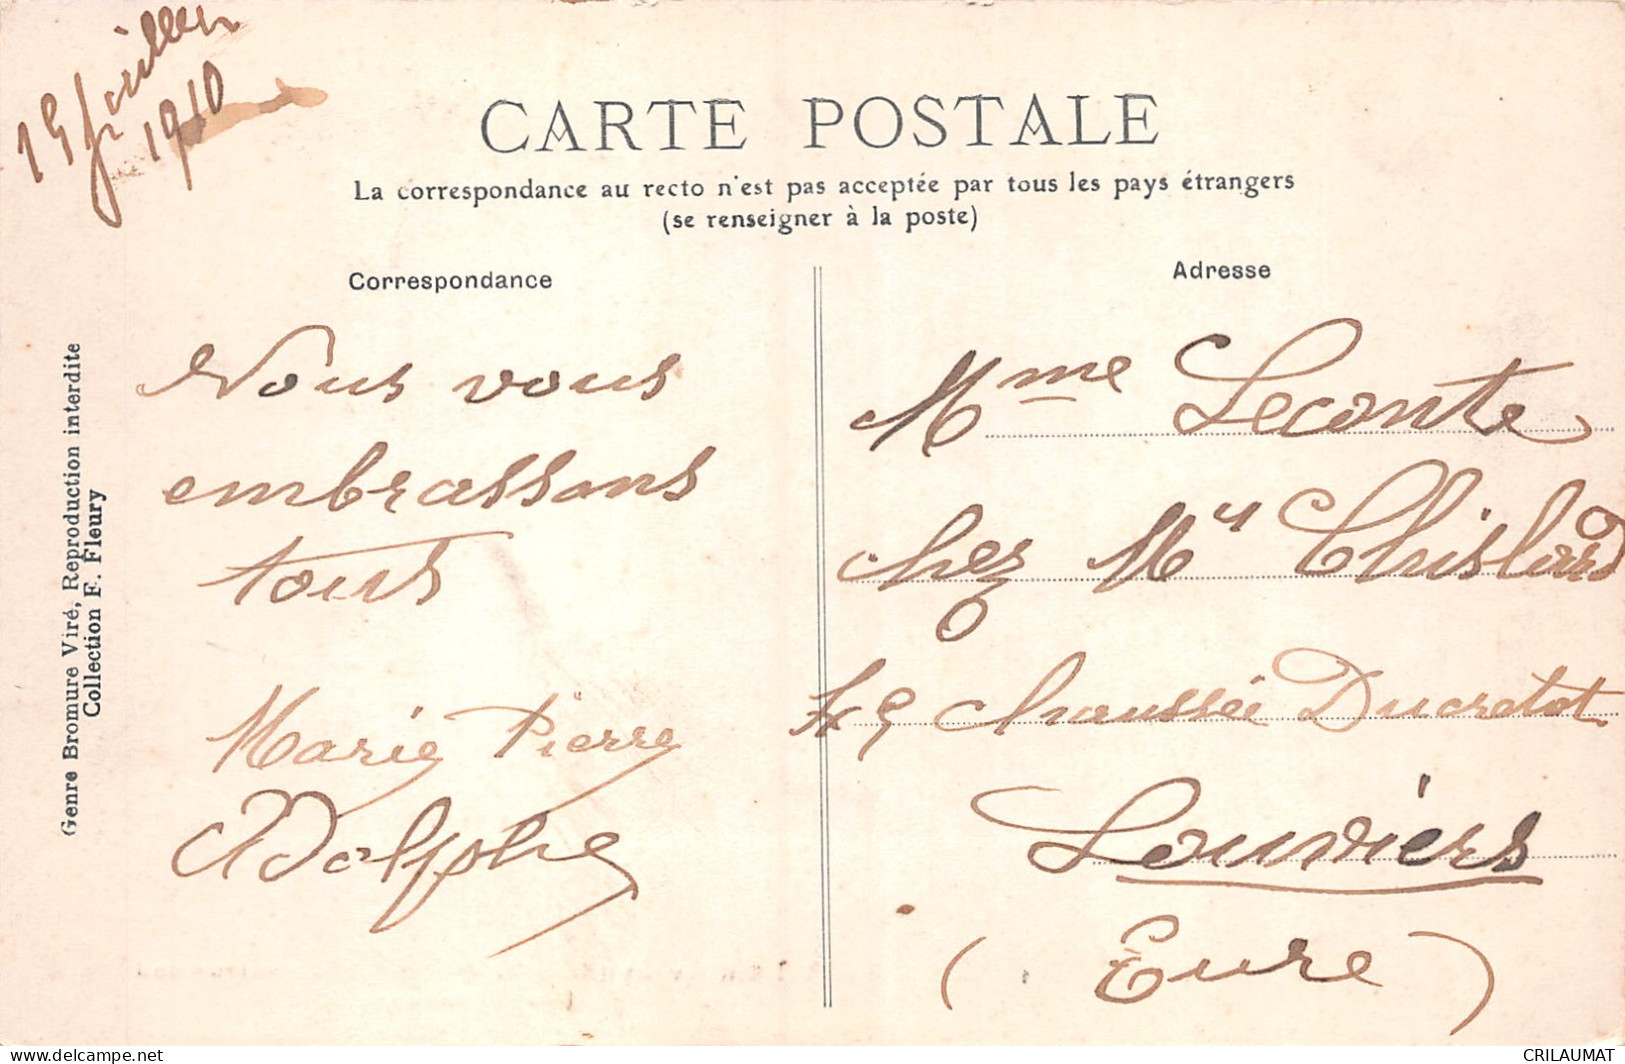 19 juillet
1910
CARTE POSTALE
La correspondance au recto n'est pas acceptée par tous les pays étrangers
(se renseigner à la poste)
Correspondance
Nous vous
embrassons
tous
Marie Pierre
Adolphe
Adresse
Mme Leconte
chez Mr
chaussée Ducretot
Louviers
(Eure)
Genre Bromure Viré, Reproduction interdite
Collection F. Fleury
delcampe.net
CRILAUMAT